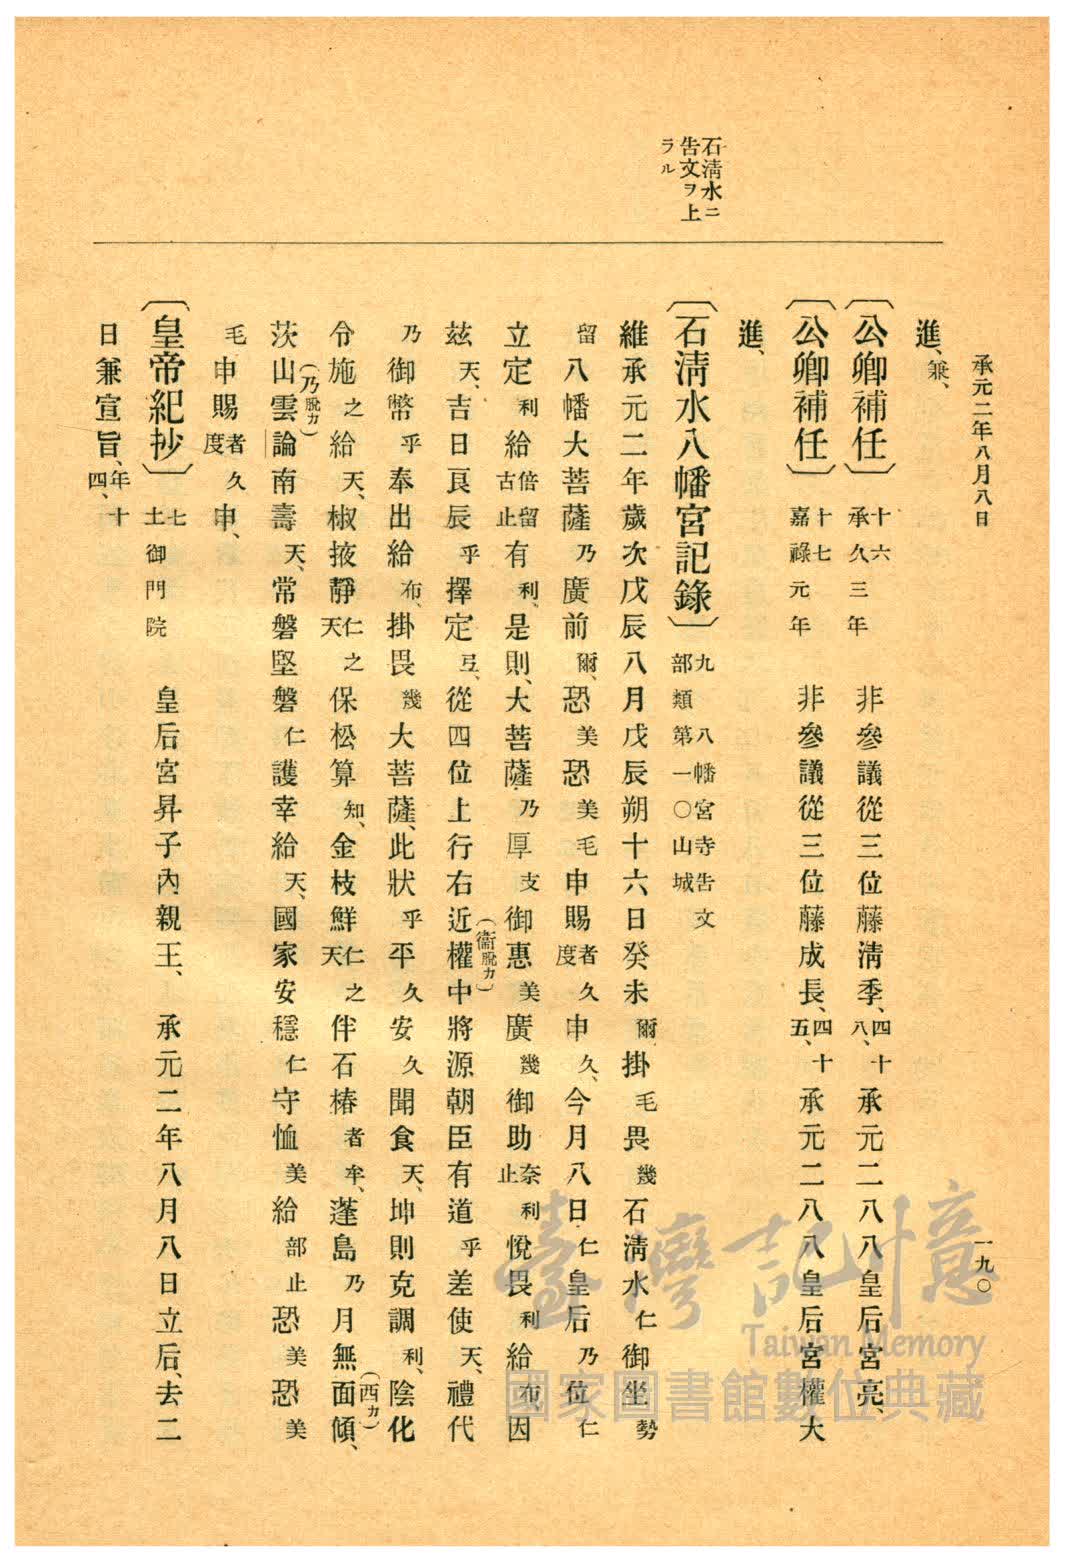 承元二年八月八日
一九〇
石淸水ニ
告文ヲ上
ラル
進、兼、
〔公卿補任〕十六承久三年 非參議從三位藤淸季、四十八、承元二八八皇后宮亮、
〔公卿補任〕十七嘉祿元年 非參議從三位藤成長、四十五、承元二八八皇后宮權大
進、
〔石淸水八幡宮記錄〕九 八幡宮寺告文部類第一〇山城
維承元二年歲次戊辰八月戊辰朔十六日癸未爾、掛毛畏幾石淸水仁御坐勢
留八幡大菩薩乃廣前爾、恐美恐美毛申賜者久度申久、今月八日仁皇后乃位仁
立定利給倍留古止有利、是則、大菩薩乃厚支御惠美廣幾御助奈利止悅畏利給布、因
玆天、吉日良辰乎擇定弖、從四位上行右近(衞脫カ)權中將源朝臣有道乎差使天、禮代
乃御幣乎奉出給布、掛畏幾大菩薩、此狀乎平久安久聞食天、坤則克調利、陰化
令施之給天、椒掖靜仁之天保松算知、金枝鮮仁之天伴石椿者牟、蓬島乃月無面(西カ)傾、
茨山(乃脫カ)雲論南壽天、常磐堅磐仁護幸給天、國家安穩仁守恤美給部止恐美恐美
毛申賜者久度申、
〔皇帝紀抄〕七土御門院 皇后宮昇子內親王、承元二年八月八日立后、去二
日兼宣旨、年十四、
臺灣記憶
Taiwan Memory
國家圖書館數位典藏